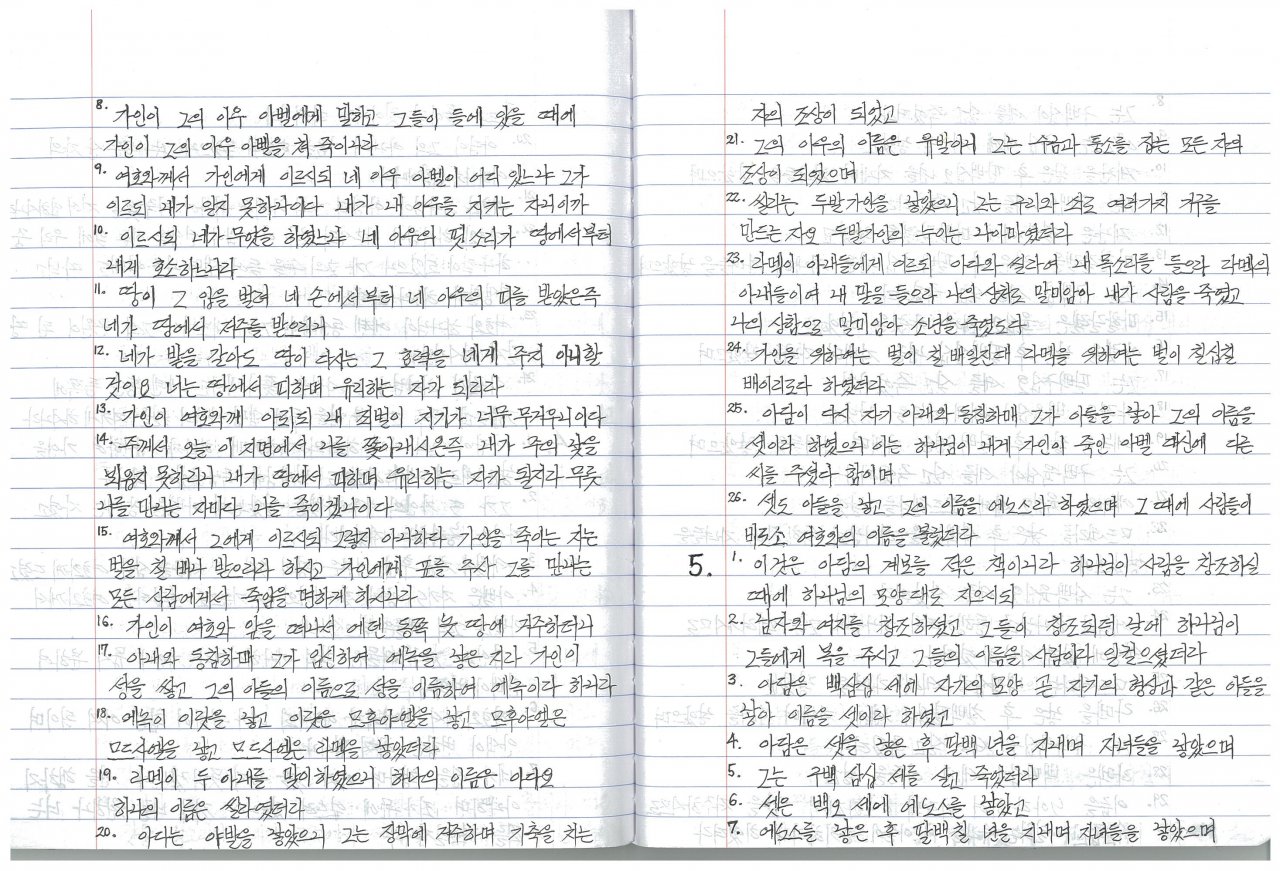 8. 가인이 그의 아우 아벨에게 말하고 그들이 들에 있을 때에
가인이 그의 아우 아벨을 쳐죽이니라
9. 여호와께서 가인에게 이르시되 네 아우 아벨이 어디 있느냐 그가
이르되 내가 알지 못하나이다 내가 내 아우를 지키는 자니이까
10. 이르시되 네가 무엇을 하였느냐 네 아우의 핏소리가 땅에서부터
내게 호소하느니라
11. 땅이 그 입을 벌려 네 손에서부터 네 아우의 피를 받았은즉
네가 땅에서 저주를 받으리니
12. 네가 밭을 갈아도 땅이 다시는 그 효력을 네게 주지 아니할
것이요 너는 땅에서 피하며 유리하는 자가 되리라
13. 가인이 여호와께 아뢰되 내 죄벌이 지기가 너무 무거우니이다
14. 주께서 오늘 이 지면에서 나를 쫓아내시온즉 내가 주의 낯을
뵈옵지 못하리니 내가 땅에서 피하며 유리하는 자가 될지라 무릇
나를 만나는 자마다 나를 죽이겠나이다
15. 여호와께서 그에게 이르시되 그렇지 아니하다 가인을 죽이는 자는
벌을 칠 배나 받으리라 하시고 가인에게 표를 주사 그를 만나는
모든 사람에게서 죽임을 면하게 하시니라
16. 가인이 여호와 앞을 떠나서 에덴 동쪽 놋 땅에 거주하더니
17. 아내와 동침하매 그가 임신하여 에녹을 낳은지라 가인이
성을 쌓고 그의 아들의 이름으로 성을 이름하여 에녹이라 하니라
18. 에녹이 이랏을 낳고 이랏은 므후야엘을 낳고 므후야엘은
므드사엘을 낳고 므드사엘은 라멕을 낳았더라
19. 라멕이 두 아내를 맞이하였으니 하나의 이름은 아다요
하나의 이름은 씰라였더라
20. 아다는 야발을 낳았으니 그는 장막에 거주하며 가축을 치는
자의 조상이 되었고
21. 그의 아우의 이름은 유발이니 그는 수금과 퉁소를 잡는 모든 자의
조상이 되었으며
22. 씰라는 두발가인을 낳았으니 그는 구리와 쇠로 여러가지 기구를
만드는 자요 두발가인의 누이는 나아마였더라
23. 라멕이 아내들에게 이르되 아다와 씰라여 내 목소리를 들으라 라멕의
아내들이여 내 말을 들으라 나의 상처로 말미암아 내가 사람을 죽였고
나의 상함으로 말미암아 소년을 죽였도다
24. 가인을 위하여는 벌이 칠 배일진대 라멕을 위하여는 벌이 칠십칠
배이리로다 하였더라
25. 아담이 다시 자기 아내와 동침하매 그가 아들을 낳아 그의 이름을
셋이라 하였으니 이는 하나님이 내게 가인이 죽인 아벨 대신에 다른
씨를 주셨다 함이며
26. 셋도 아들을 낳고 그의 이름을 에노스라 하였으며 그 때에 사람들이
비로소 여호와의 이름을 불렀더라
5. 1. 이것은 아담의 계보를 적은 책이니라 하나님이 사람을 창조하실
때에 하나님의 모양대로 지으시되
2. 남자와 여자를 창조하셨고 그들이 창조되던 날에 하나님이
그들에게 복을 주시고 그들의 이름을 사람이라 일컬으셨더라
3. 아담은 백삼십 세에 자기의 모양 곧 자기의 형상과 같은 아들을
낳아 이름을 셋이라 하였고
4. 아담은 셋을 낳은 후 팔백 년을 지내며 자녀들을 낳았으며
5. 그는 구백 삼십 세를 살고 죽었더라
6. 셋은 백오 세에 에노스를 낳았고
7. 에노스를 낳은 후 팔백 칠 년을 지내며 자녀들을 낳았으며